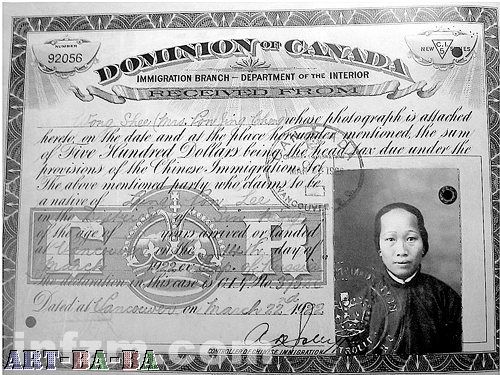 NUMBER
92056
DOMINION OF CANADA
NEW C.I. 5 SERIES
IMMIGRATION BRANCH – DEPARTMENT OF THE INTERIOR
RECEIVED FROM
Wong Shee (Mrs. whose photograph is attached
hereto, on the date and at the place hereunder mentioned, the sum
of Five Hundred Dollars being the head tax due under the
provisions of the Chinese Immigration Act.
The above mentioned party who claims to be
a native of
in the of
of the age of years arrived or landed
at Vancouver on the day of
March
the declaration in this case is C.I.4 No.
Dated at Vancouver on March 22nd
CONTROLLER OF CHINESE IMMIGRATION
VANCOUVER
infzm.com
ART-BA-BA